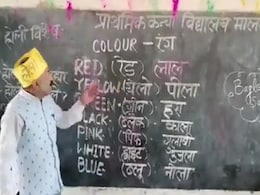 प्राथमिक कन्या विद्यालय
होली विशेष
COLOUR - रंग
RED (रेड) लाल
YELLOW (येलो) पीला
(ग्रीन) हरा
BLACK- (ब्लैक)- काला
PINK (पिंक) गुलाबी
WHITE- उजला
BLUE- (ब्लू) - नीला